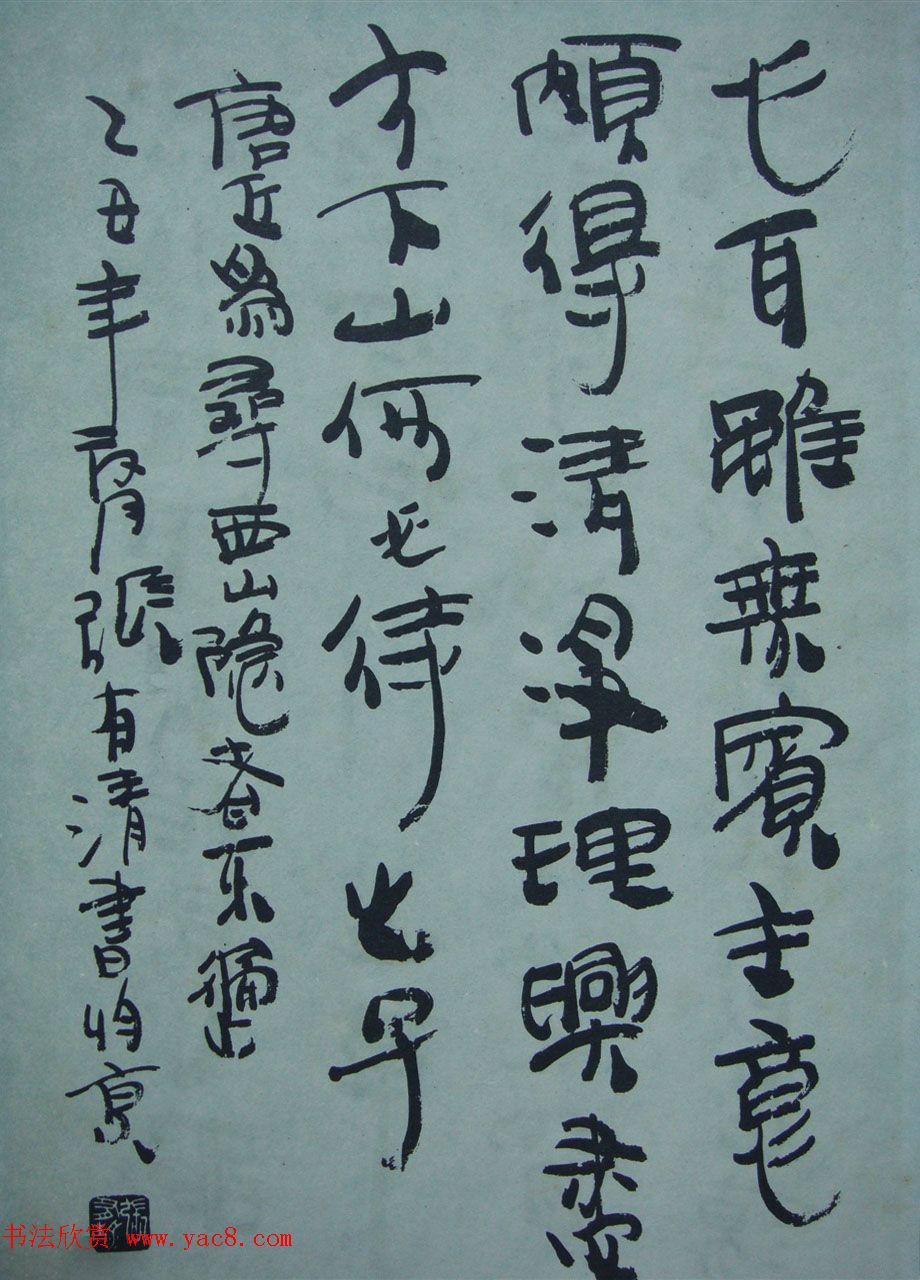 雖無賓主意
頗得清淨理興盡
方下山何必待之子
唐丘為尋西山隱者不遇
乙丑年月張有清書於京
书法欣赏 www.yac8.com